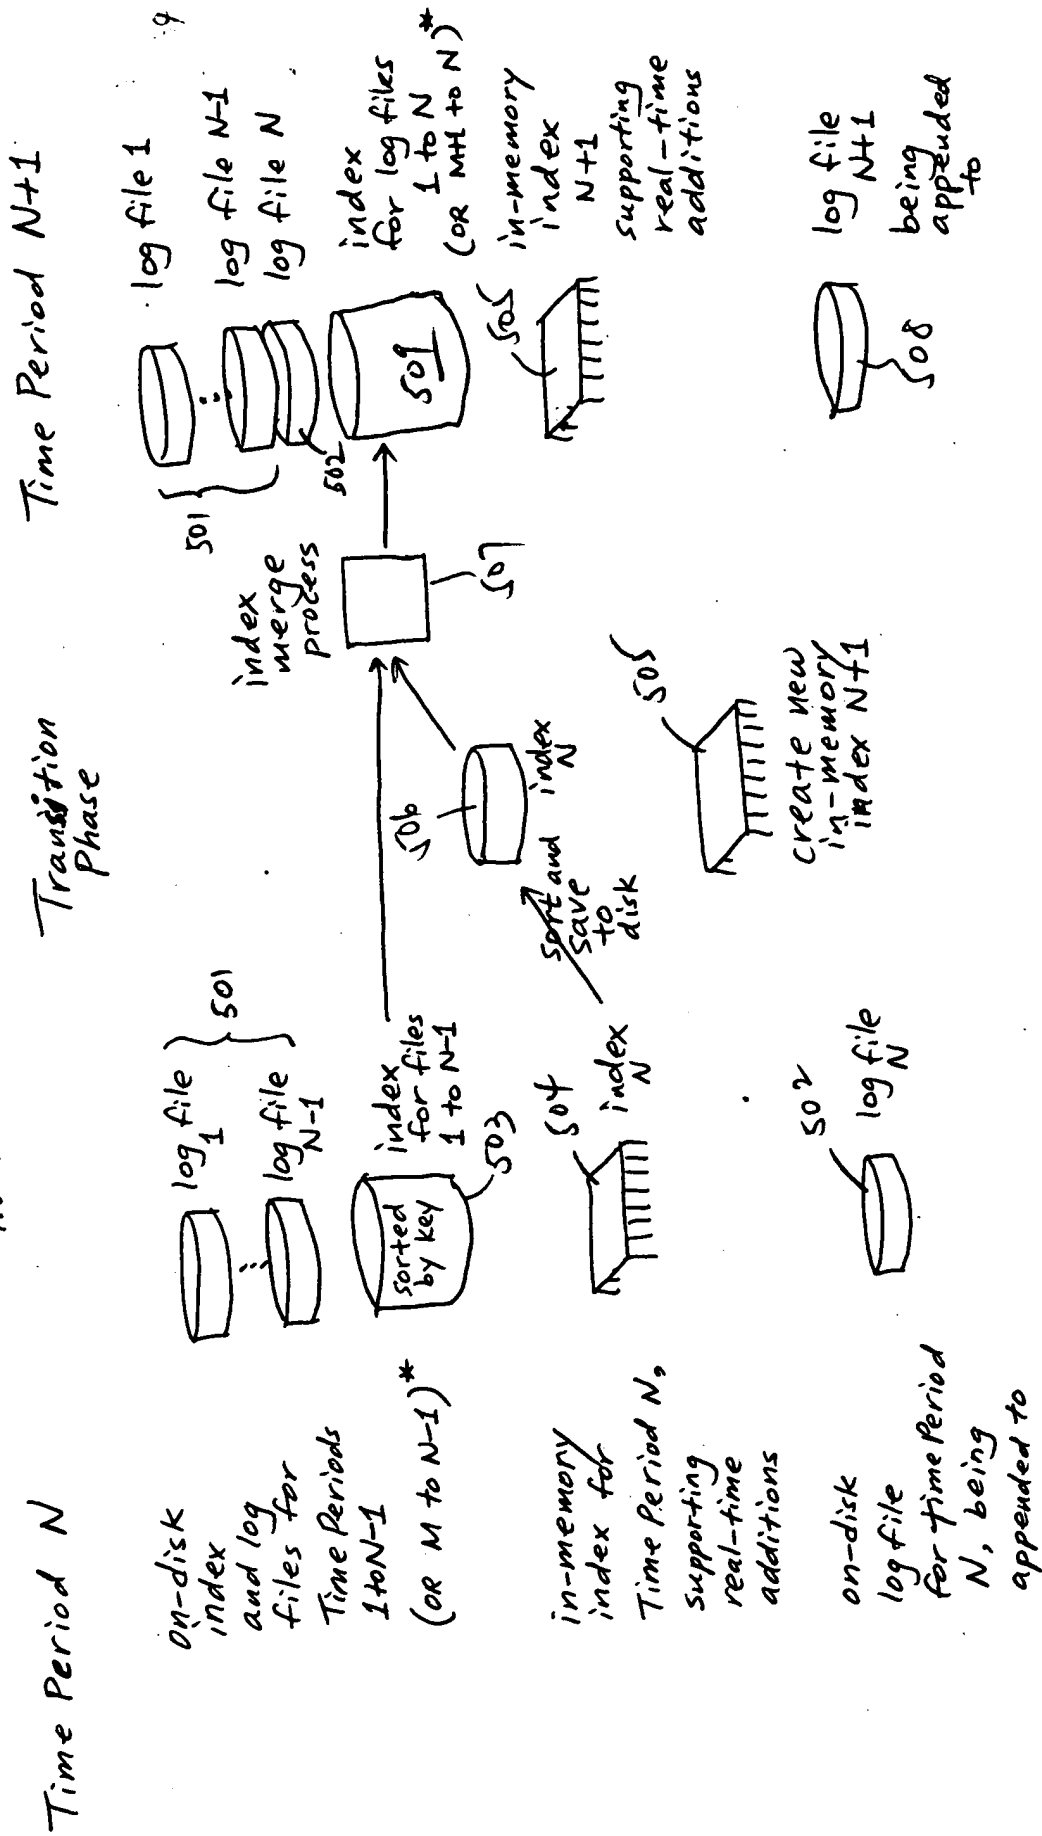 Time Period N
on-disk
index
and log
files for
Time Periods
1 to N-1
(OR M to N-1)*
in-memory
index for
Time Period N,
supporting
real-time
additions
on-disk
log file
for time Period
N, being
appended to
log file
1
log file
N-1
501
sorted
by key
index
for files
1 to N-1
503
504
index
N
502
log file
N
Transition
Phase
sort and
save
to
disk
506
index
N
index
merge
process
507
505
create new
in-memory
index N+1
Time Period N+1
501
502
log file 1
log file N-1
log file N
509
index
for log files
1 to N
(OR M+1 to N)*
505
in-memory
index
N+1
supporting
real-time
additions
508
log file
N+1
being
appended
to